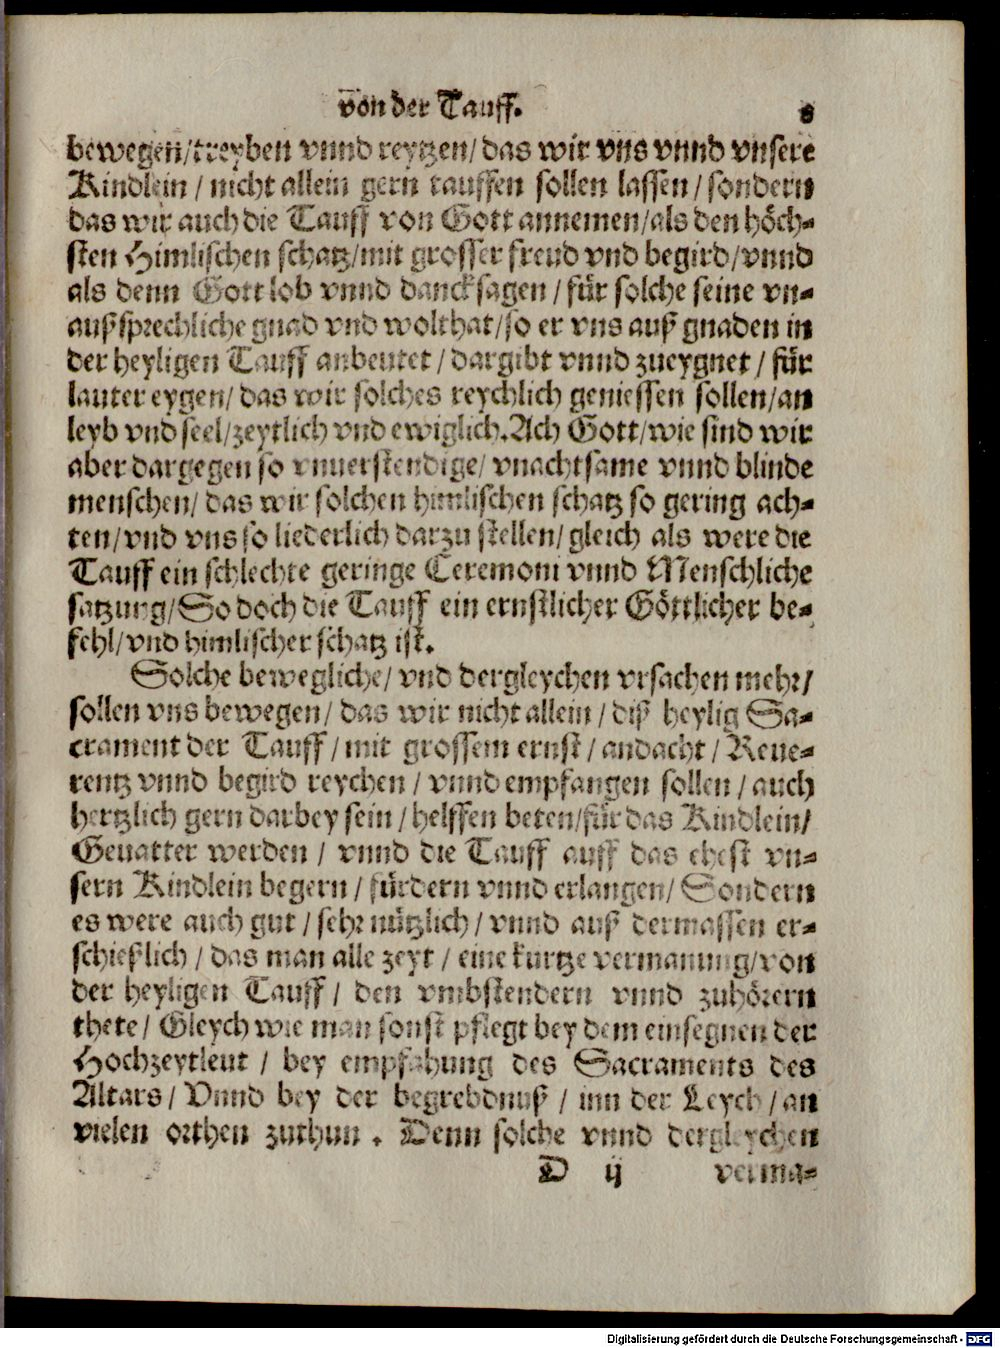 von der Tauff. 8
bewegen/treyben vnnd reytzen/das wir vns vnnd vnsere
Kindlein/nicht allein gern tauffen sollen lassen/sondern
das wir auch die Tauff von Gott annemen/als den höch-
sten Himlischen schatz/mit grosser freud vnd begird/vnnd
als denn Gott lob vnnd danck sagen/für solche seine vn-
außsprechliche gnad vnd wolthat/so er vns auß gnaden in
der heyligen Tauff anbeutet/dargibt vnnd zueygnet/für
lauter eygen/das wir solches reychlich geniessen sollen/an
leyb vnd seel/zeytlich vnd ewiglich. Ach Gott/wie sind wir
aber dargegen so vnuerstendige/vnachtsame vnnd blinde
menschen/das wir solchen himlischen schatz so gering ach-
ten/vnd vns so liederlich darzu stellen/gleich als were die
Tauff ein schlechte geringe Ceremoni vnnd Menschliche
satzung/So doch die Tauff ein ernstlicher Göttlicher be-
fehl/vnd himlischer schatz ist.
Solche bewegliche/vnd dergleychen vrsachen mehr/
sollen vns bewegen/das wir nicht allein/diß heylig Sa-
crament der Tauff/mit grossem ernst/andacht/Reue-
rentz vnnd begird reychen/vnnd empfangen sollen/auch
hertzlich gern darbey sein/helffen beten/für das Kindlein/
Geuatter werden/vnnd die Tauff auff das ehest vn-
sern Kindlein begern/fürdern vnnd erlangen/Sondern
es were auch gut/sehr nützlich/vnnd auß dermassen er-
schießlich/das man alle zeyt/eine kurtze vermanung/von
der heyligen Tauff/den vmbstendern vnnd zuhörern
thete/Gleych wie man sonst pflegt bey dem einsegnen der
Hochzeytleut/bey empfahung des Sacraments des
Altars/Vnnd bey der begrebdnuß/inn der Leych/an
vielen orthen zuthun. Denn solche vnnd dergleychen
D ij verma-
Digitalisierung gefördert durch die Deutsche Forschungsgemeinschaft - DFG